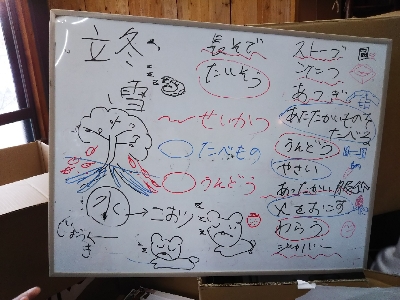 立冬
雪
長そで
たいそう
〜せいかつ
たべもの
うんどう
水→こおり
どじょう
き
ストーブ
あつぎ
あたたかいものを
たべる
うんどう
やさい
あったかい服
火をおこす
わらう
ジャンパー